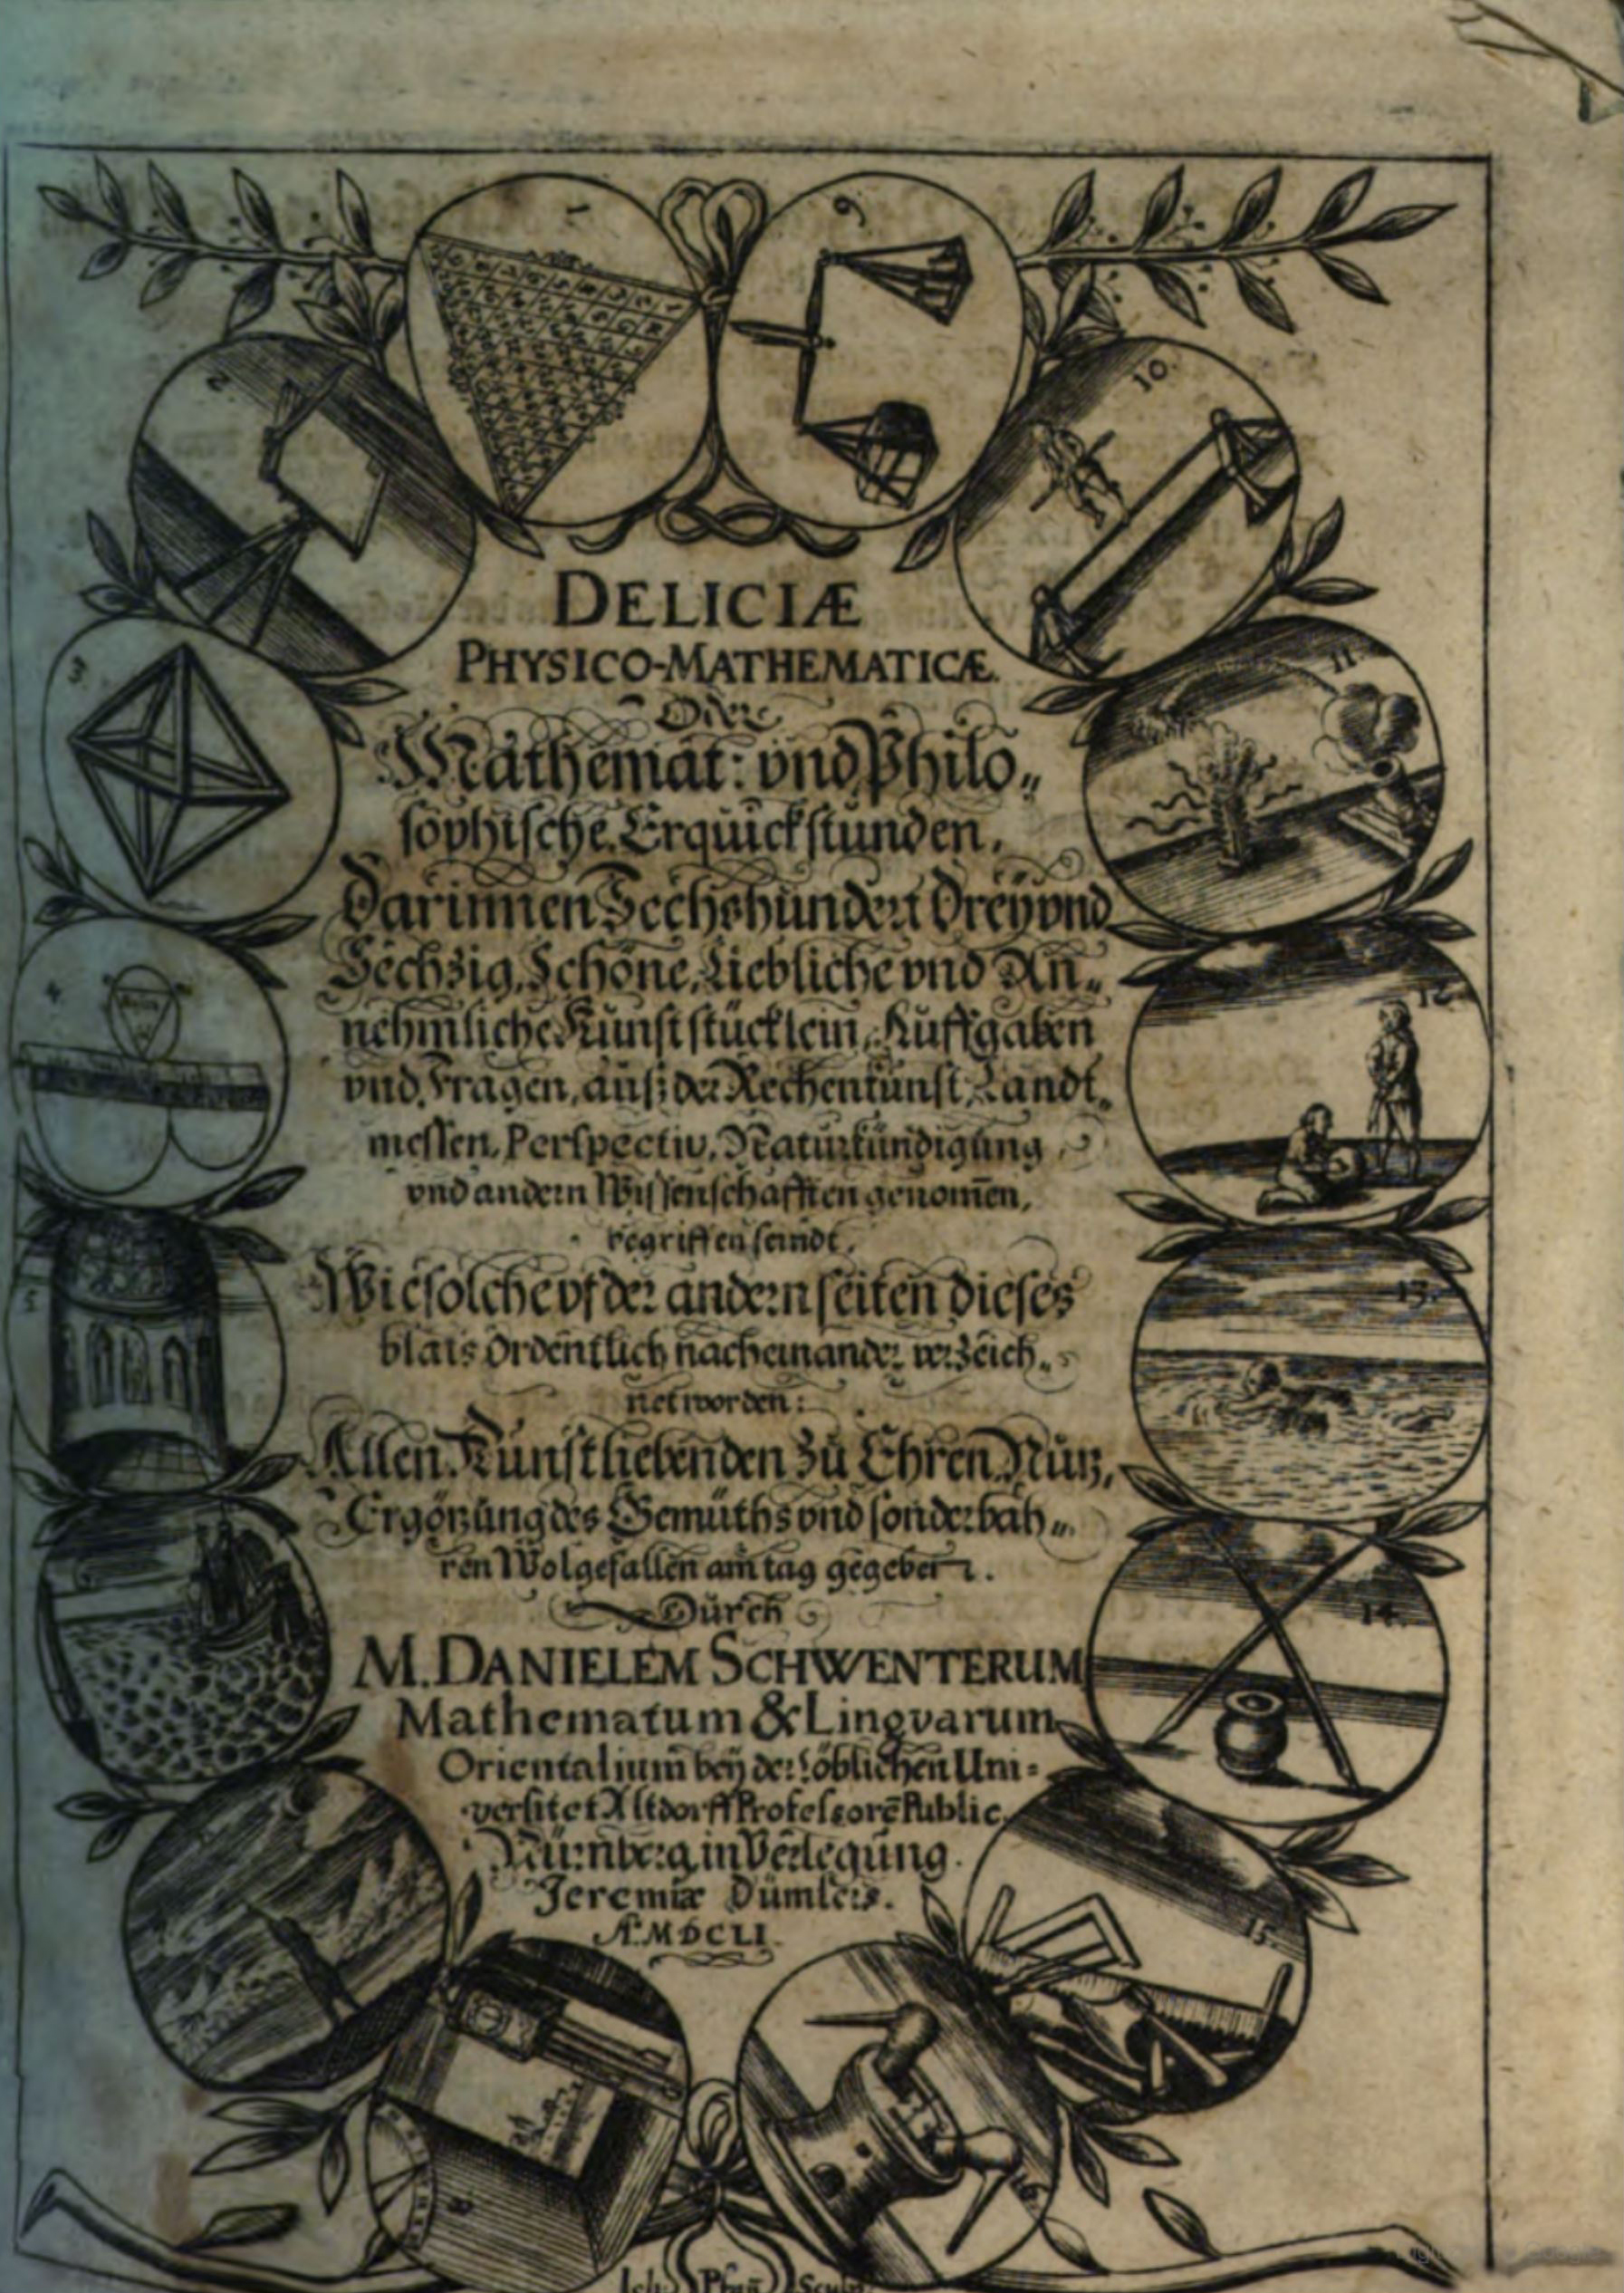 DELICIÆ
PHYSICO-MATHEMATICÆ.
Oder
Mathemat: vnd Philo„
sophische Erquickstunden,
Darinnen Sechshundert Dreÿ vnd
Sechzig, Schöne, Liebliche vnd An„
nehmliche Kunststücklein, Auffgaben
vnd Fragen, auß der Rechenkunst, Landt„
messen, Perspectiv, Naturkündigung
vnd andern Wissenschafften genom̄en,
begriffen seindt,
Wie solche vf der andern seiten dieses
blats Ordentlich nacheinander verzeich„
net worden:
Allen Kunstliebenden zu Ehren, Nutz,
Ergötzung des Gemüths vnd sonderbah„
ren Wolgefallen am tag gegeben.
Durch
M. DANIELEM SCHWENTERUM
Mathematum & Lingvarum
Orientalium beÿ der Löblichen Uni=
versitet Altdorff Professorē Public.
Nürnberg, in Verlegung
Jeremiæ Dümlers.
A. MDCLI.
1
9
2
10.
3.
11.
4.
12
13.
14.
15.
16.
8
Sculp.